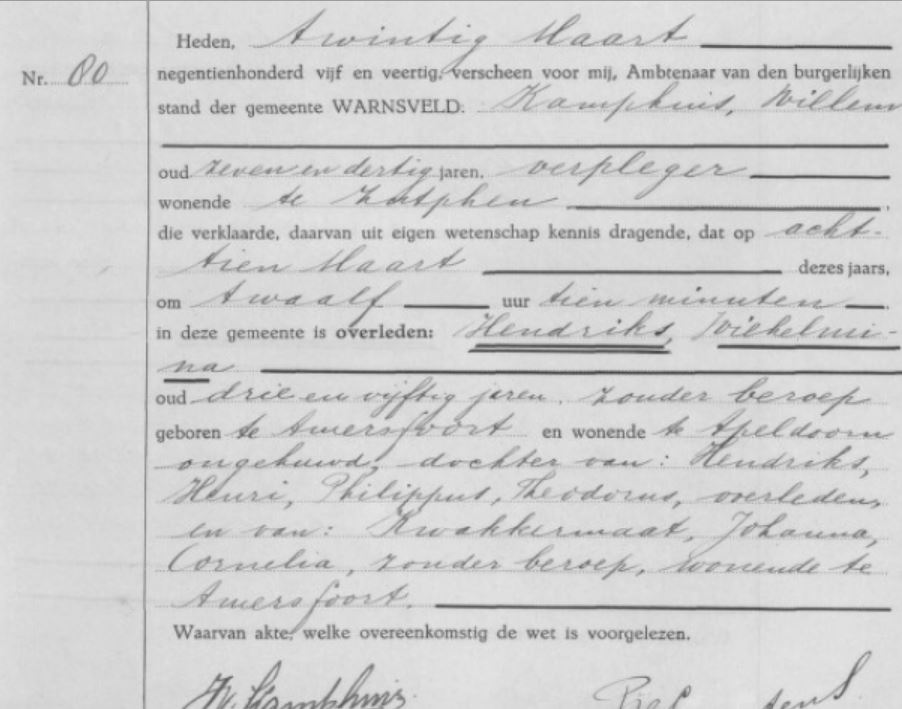 Heden, twintig Maart
Nr. 80 negentienhonderd vijf en veertig, verscheen voor mij, Ambtenaar van den burgerlijken
stand der gemeente WARNSVELD: Kamphuis, Willem
oud zeven en dertig jaren, verpleger
wonende te Zutphen,
die verklaarde, daarvan uit eigen wetenschap kennis dragende, dat op acht-
tien Maart dezes jaars,
om twaalf uur tien minuten,
in deze gemeente is overleden: Hendriks, Wiehelmi-
na
oud drie en vijftig jaren, zonder beroep
geboren te Amersfoort en wonende te Apeldoorn
ongehuwd, dochter van: Hendriks,
Henri, Philippus, Theodorus, overleden,
en van: Kwakkermaat, Johanna,
Cornelia, zonder beroep, wonende te
Amersfoort.
Waarvan akte, welke overeenkomstig de wet is voorgelezen.
W. Kamphuis.